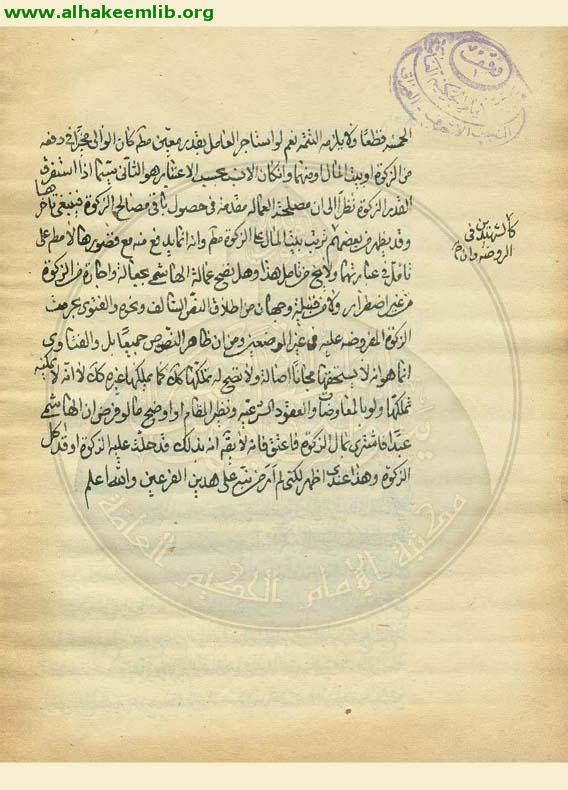 www.alhakeemlib.org
وقف
الخمسة قطعا ولا يلزمه التتمة نعم لو استاجر العامل بقدر معين مطلقا كان الوالي مخيرا في دفعه
من الزكوة او بيت المال او منهما وان كان الاب بحسب الاعتبار هو الثاني سيما اذا استغرق
القدر الزكوة نظرا الى ان مصلحة العمالة مقدمة في حصول باقي مصالح الزكوة فينبغي تاخرها
كالشهيدين في
الروضه
وقد يظهر من بعضهم ترتب بيت المال على الزكوة وانه انما يدفع منه مع قصورها لا مطلقا على
تامل في عبارتهما ولا يخ من تامل هذا وهل يصح عمالة الهاشمي بجعالة واجارة من الزكوة
من غير اضطرار ولا من قبيلة وجهان من اطلاق النص السالف ونحوه والفتوى بحرمة
الزكوة المفروضة عليه في غير الموضعين ومن ان ظاهر النصوص جميعا بل والفتاوى
انما هو انه لا يستحقها مجانا اصالة ولا تصح له تملكها كل كما يملكها غيره كل لا انه لا يمكنه
تملكها ولو بالمعاوضات والعقود الشرعيه ونظير المقام او اوضح ما لو فرض ان الهاشمي
عبدا فاشتري بمال الزكوة فاعتق فانه لا يقال انه بذلك قد حلت عليه الزكوة او قد اكل
الزكوة وهذا عندي اظهر لكني لم ار من نبه على هذين الفرعين والله اعلم
مكتبة الإمام الحكيم العامة